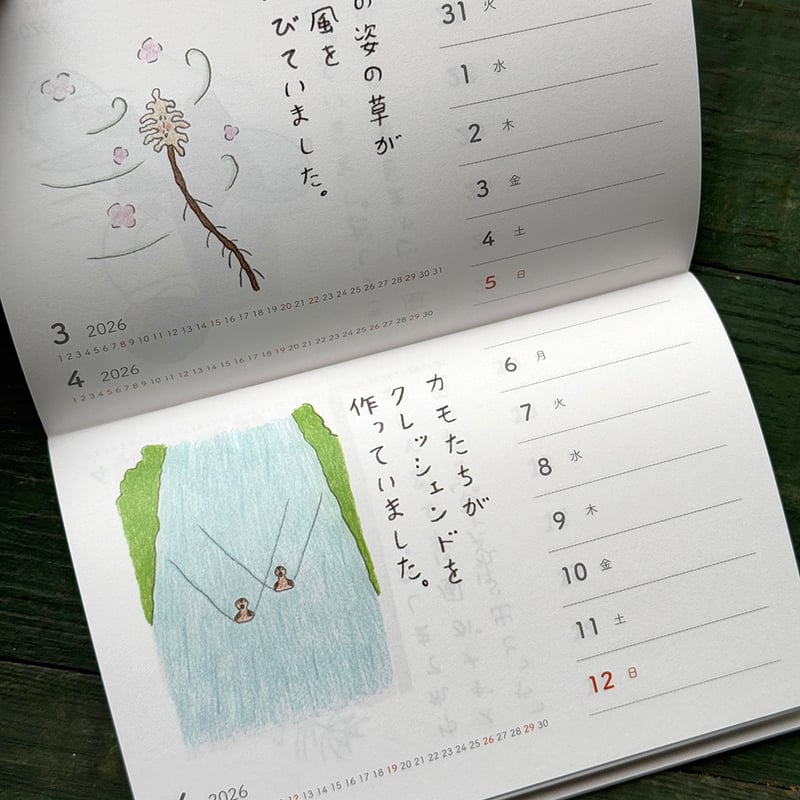 の姿の草が
風を
びていました。
31 火
1 水
2 木
3 金
4 土
5 日
3 2026
1 2 3 4 5 6 7 8 9 10 11 12 13 14 15 16 17 18 19 20 21 22 23 24 25 26 27 28 29 30 31
4 2026
1 2 3 4 5 6 7 8 9 10 11 12 13 14 15 16 17 18 19 20 21 22 23 24 25 26 27 28 29 30
カモたちが
クレッシェンドを
作っていました。
6 月
7 火
8 水
9 木
10 金
11 土
12 日
2026
12 13 14 15 16 17 18 19 20 21 22 23 24 25 26 27 28 29 30